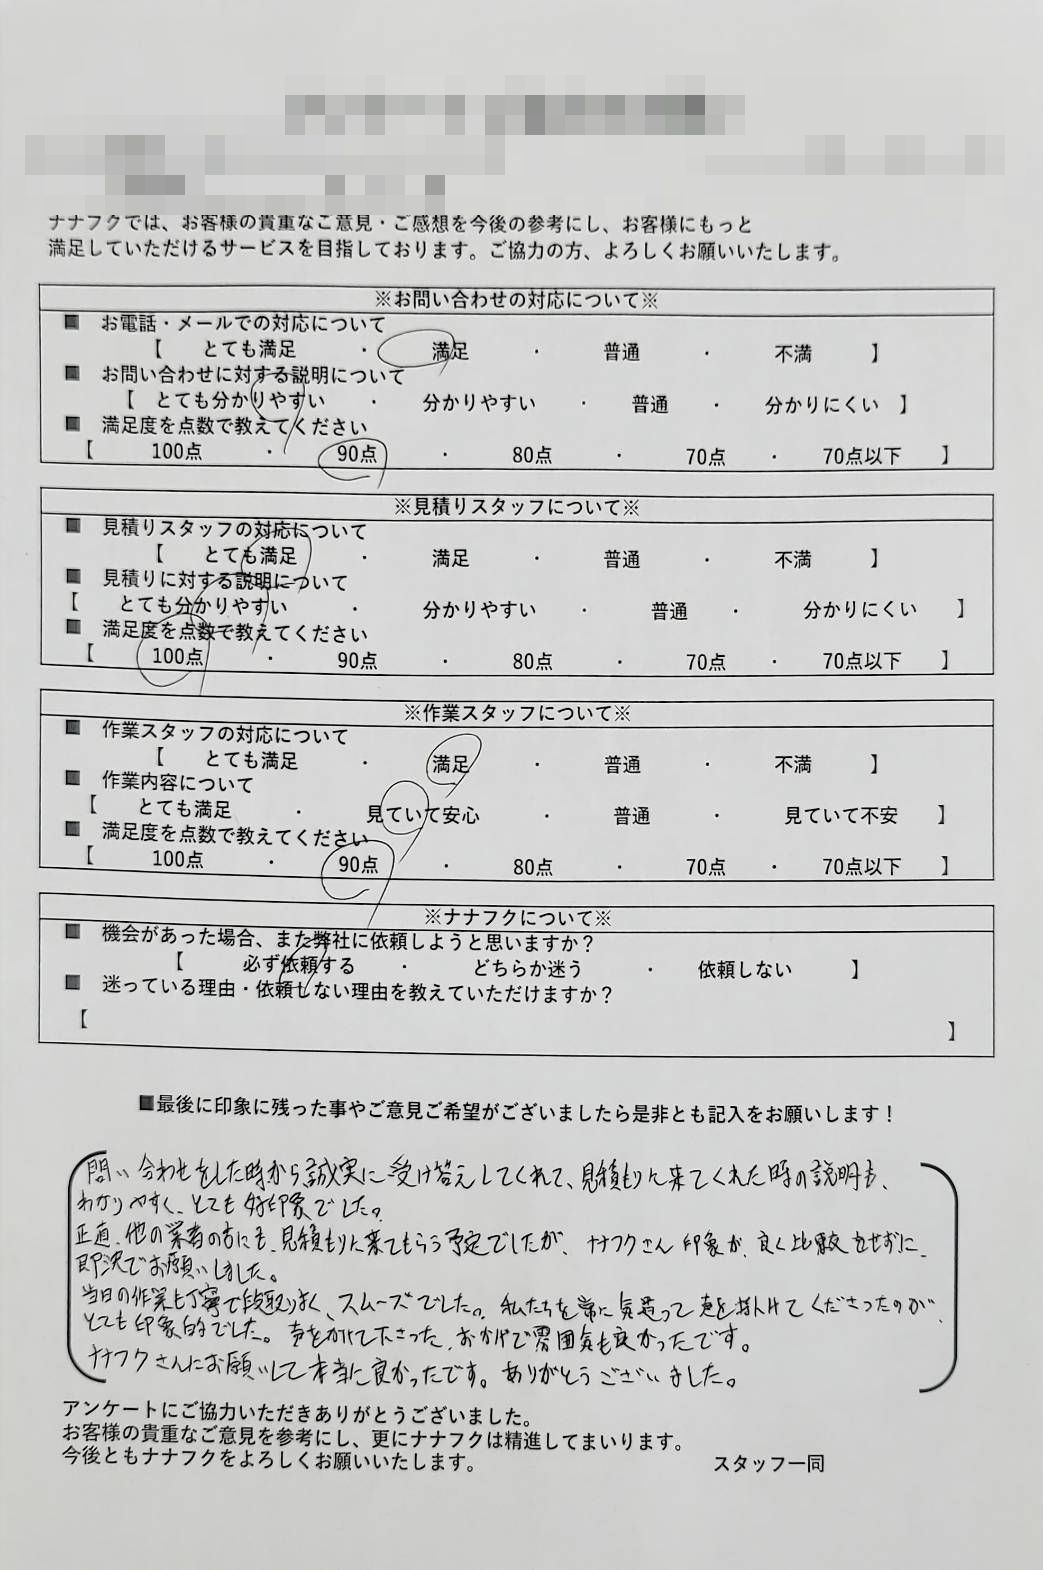 ナナフクでは、お客様の貴重なご意見・ご感想を今後の参考にし、お客様にもっと
満足していただけるサービスを目指しております。ご協力の方、よろしくお願いいたします。
※お問い合わせの対応について※
■ お電話・メールでの対応について
【 とても満足 ・ 満足 ・ 普通 ・ 不満 】
■ お問い合わせに対する説明について
【 とても分かりやすい ・ 分かりやすい ・ 普通 ・ 分かりにくい 】
■ 満足度を点数で教えてください
【 100点 ・ 90点 ・ 80点 ・ 70点 ・ 70点以下 】
※見積りスタッフについて※
■ 見積りスタッフの対応について
【 とても満足 ・ 満足 ・ 普通 ・ 不満 】
■ 見積りに対する説明について
【 とても分かりやすい ・ 分かりやすい ・ 普通 ・ 分かりにくい 】
■ 満足度を点数で教えてください
【 100点 ・ 90点 ・ 80点 ・ 70点 ・ 70点以下 】
※作業スタッフについて※
■ 作業スタッフの対応について
【 とても満足 ・ 満足 ・ 普通 ・ 不満 】
■ 作業内容について
【 とても満足 ・ 見ていて安心 ・ 普通 ・ 見ていて不安 】
■ 満足度を点数で教えてください
【 100点 ・ 90点 ・ 80点 ・ 70点 ・ 70点以下 】
※ナナフクについて※
■ 機会があった場合、また弊社に依頼しようと思いますか？
【 必ず依頼する ・ どちらか迷う ・ 依頼しない 】
■ 迷っている理由・依頼しない理由を教えていただけますか？
【 】
■最後に印象に残った事やご意見ご希望がございましたら是非とも記入をお願いします！
問い合わせをした時から誠実に受け答えしてくれて、見積もりに来てくれた時の説明も、
わかりやすく、とても好印象でした。
正直、他の業者の方にも、見積もりに来てもらう予定でしたが、ナナフクさん印象が、良く比較をせずに、
即決でお願いしました。
当日の作業も丁寧で段取りよく、スムーズでした。私たちを常に気遣って声を掛けてくださったのが、
とても印象的でした。声をかけて下さった、おかげで雰囲気も良かったです。
ナナフクさんにお願いして本当に良かったです。ありがとうございました。
アンケートにご協力いただきありがとうございました。
お客様の貴重なご意見を参考にし、更にナナフクは精進してまいります。
今後ともナナフクをよろしくお願いいたします。 スタッフ一同